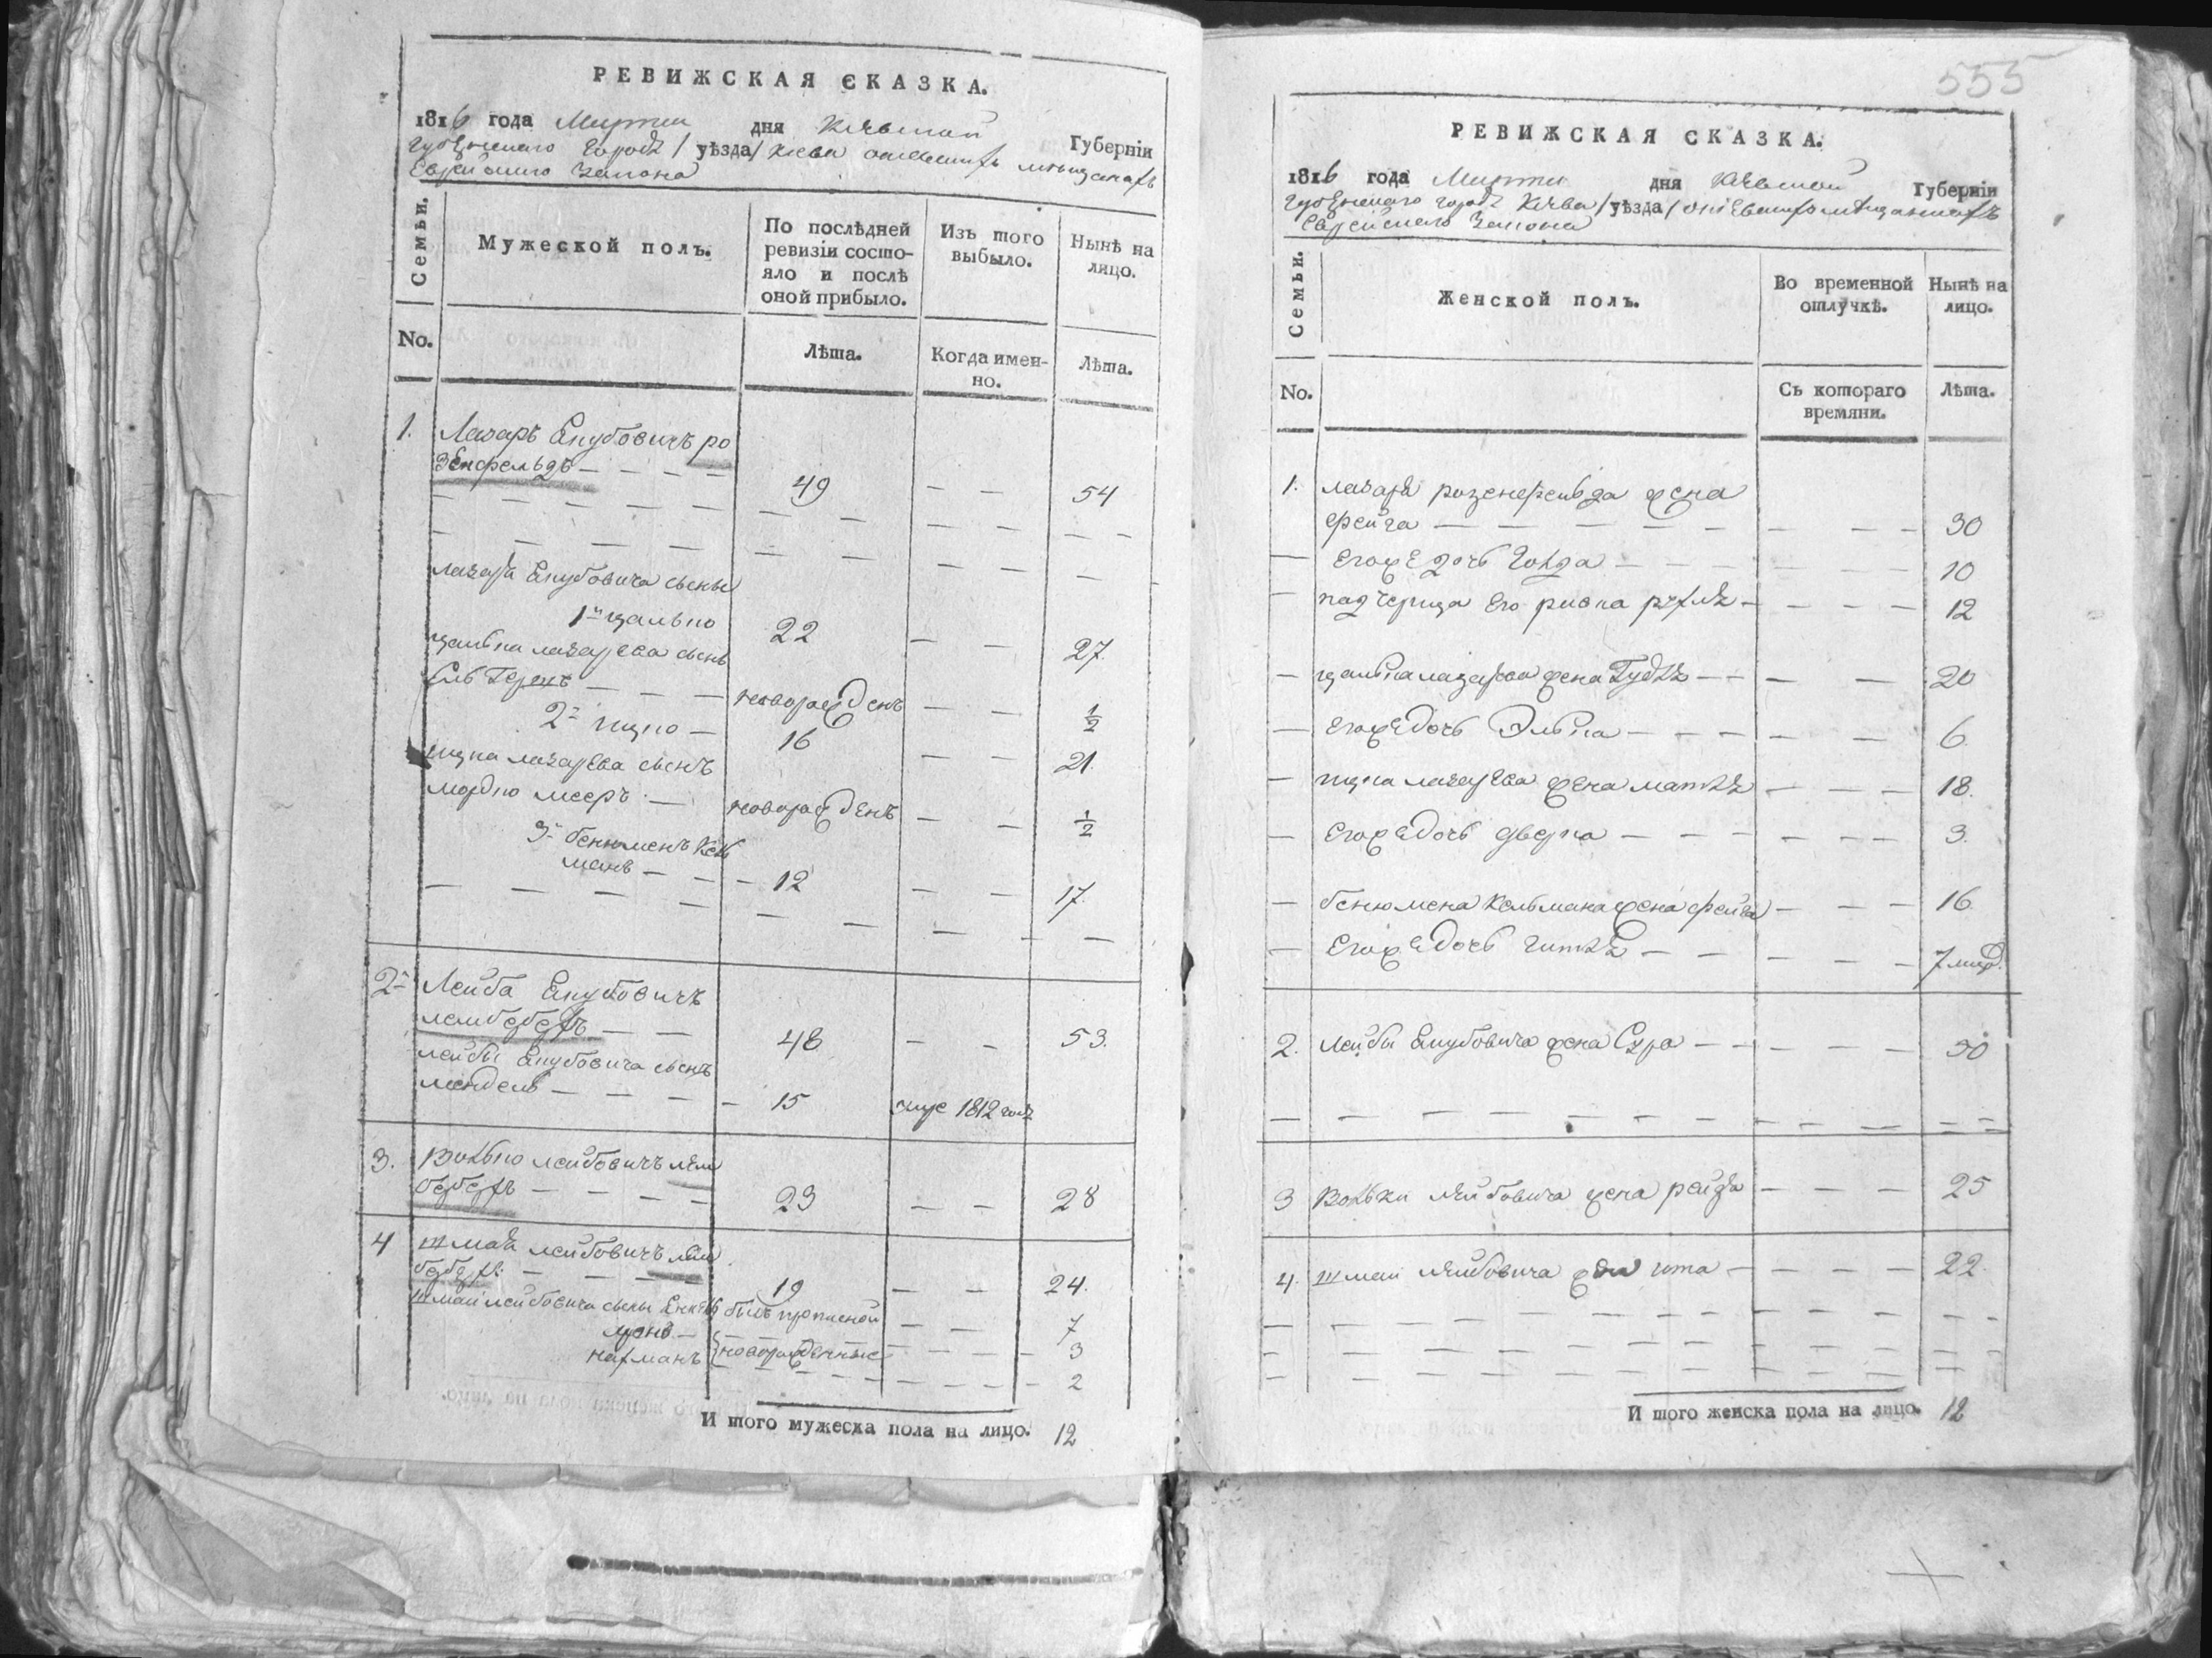 РЕВИЖСКАЯ СКАЗКА.
1816 года Марта дня Киевской Губерніи
Губернскаго города /уѣзда/ Киева мѣщанахъ
Еврейскаго Закона
Семьи.
Мужеской полъ.
По послѣдней ревизіи состояло и послѣ оной прибыло.
Изъ того выбыло.
Нынѣ на лицо.
No.
Лѣта.
Когда именно.
Лѣта.
1. Лазаръ Якубовичъ Ро
зенфельдъ — — — — 49 — — 54
Лазаря Якубовича сыны
1й Цалько 22 — — 27.
Цалька Лазарева сынъ
Герцъ — — — новорожденъ — — ½
2й Ицко — 16 — — 21.
Ицка Лазарева сынъ
Мордко Мееръ — новорожденъ — — ½
3й Бенюменъ Кель
манъ — — — 12 — — 17.
2й Лейба Якубовичъ
Лембербергъ — — 48 — — 53.
Лейбы Якубовича сынъ
Мендель — — — — 15 1812 года
3. Волько Лейбовичъ Лем
берберъ — — — — 23 — — 28
4 Шмая Лейбовичъ Лем
берберъ — — — — 19 — — 24.
Шмаи Лейбовича сыны былъ прописной — — 7
новорожденные — — 3
Нахманъ — — 2
И того мужеска пола на лицо. 12
555
РЕВИЖСКАЯ СКАЗКА.
1816 года Марта дня Киевской Губерніи
Губернскаго города Киева /уѣзда/ мѣщанахъ
Еврейскаго Закона
Семьи.
Женской полъ.
Во временной отлучкѣ.
Нынѣ на лицо.
No.
Съ котораго времяни.
Лѣта.
1. Лазаря Розенфельда жена
Фейга — — — — — — 30
Егожѐ дочь Голда — — — — 10
падчерица его Ривка — — — — 12
Цалька Лазарева жена — — — — 20
Егоже дочь Элька — — — — — 6.
Ицка Лазарева жена — — — 18.
Егоже дочь Дверка — — — — — 3.
Бенюмена Кельмана жена — — — 16.
Егоже дочь — — — — — 7
2. Лейбы Якубовича жена Сура — — — — 50
3 Вольки Лейбовича жена Рейза — — — 25
4. Шмаи Лейбовича жена — — — — 22.
И того женска пола на лицо. 12